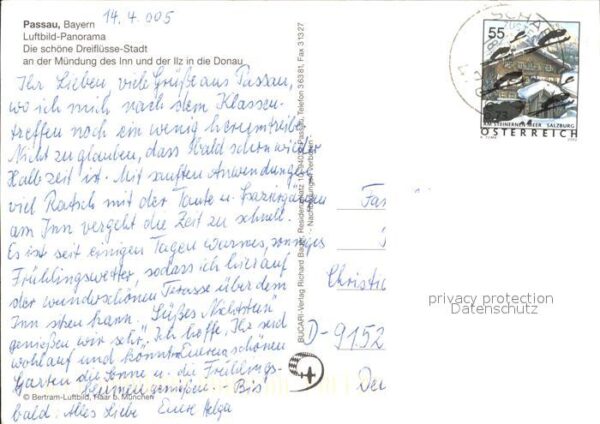 Passau, Bayern
14.4.005
Luftbild-Panorama
Die schöne Dreiflüsse-Stadt
an der Mündung des Inn und der Ilz in die Donau
Ihr Lieben, viele Grüße aus Passau,
wo ich mich nach dem Klassen-
treffen noch ein wenig herumtreibe.
Nicht zu glauben, dass bald schon wieder
Halbzeit ist. Mit sanften Anwendungen
viel Ratsch mit der Tante u. Spaziergängen
am Inn vergeht die Zeit zu schnell.
Es ist seit einigen Tagen warmes, sonniges
Frühlingswetter, sodass ich hier auf
der wunderschönen Terasse über dem
Inn sitzen kann. Süßes "Nichtstun"
genießen wir sehr". Ich hoffe, Ihr seid
wohlauf und könnt Euren schönen
Garten die Sonne u. die Frühlings-
blumen genießen. Bis
bald: Alles Liebe Eure Helga
© Bertram-Luftbild, Haar b. München
BUCARI-Verlag Richard Residenzplatz 94032 Passau, Telefon 36381, Fax 31327
- Nachbildungen verboten -
55
0,73
AM STEINERNEN MEER SALZBURG
ÖSTERREICH
Fam
Christi
D-9152
privacy protection
Datenschutz